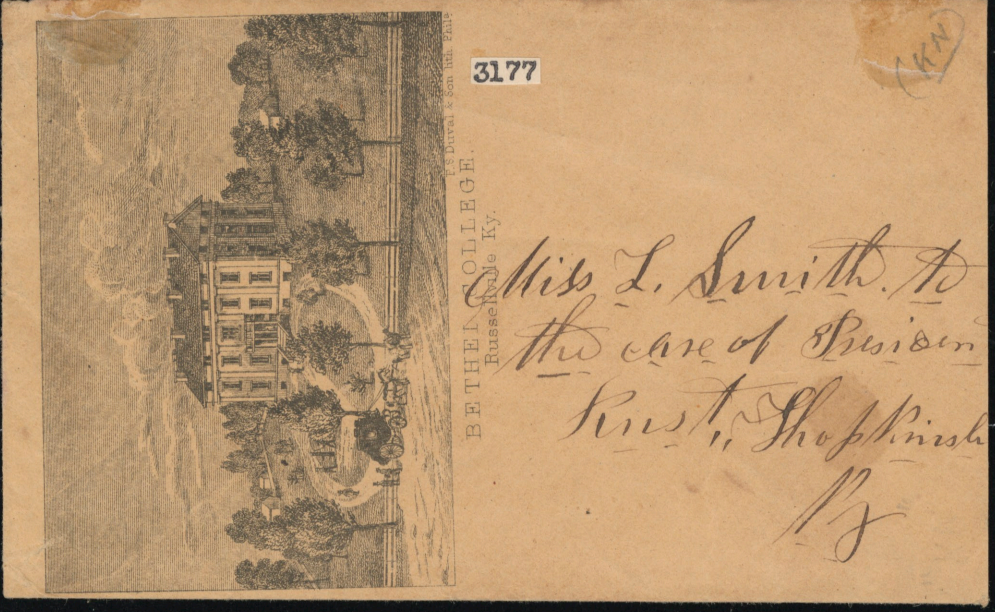 3177
(KN)
P.S. Duval & Son lith. Phila
BETHEL COLLEGE.
Russellville Ky.
Miss L. Smith. to
the care of Presiden
Rust,, Hopkinsh
Ky